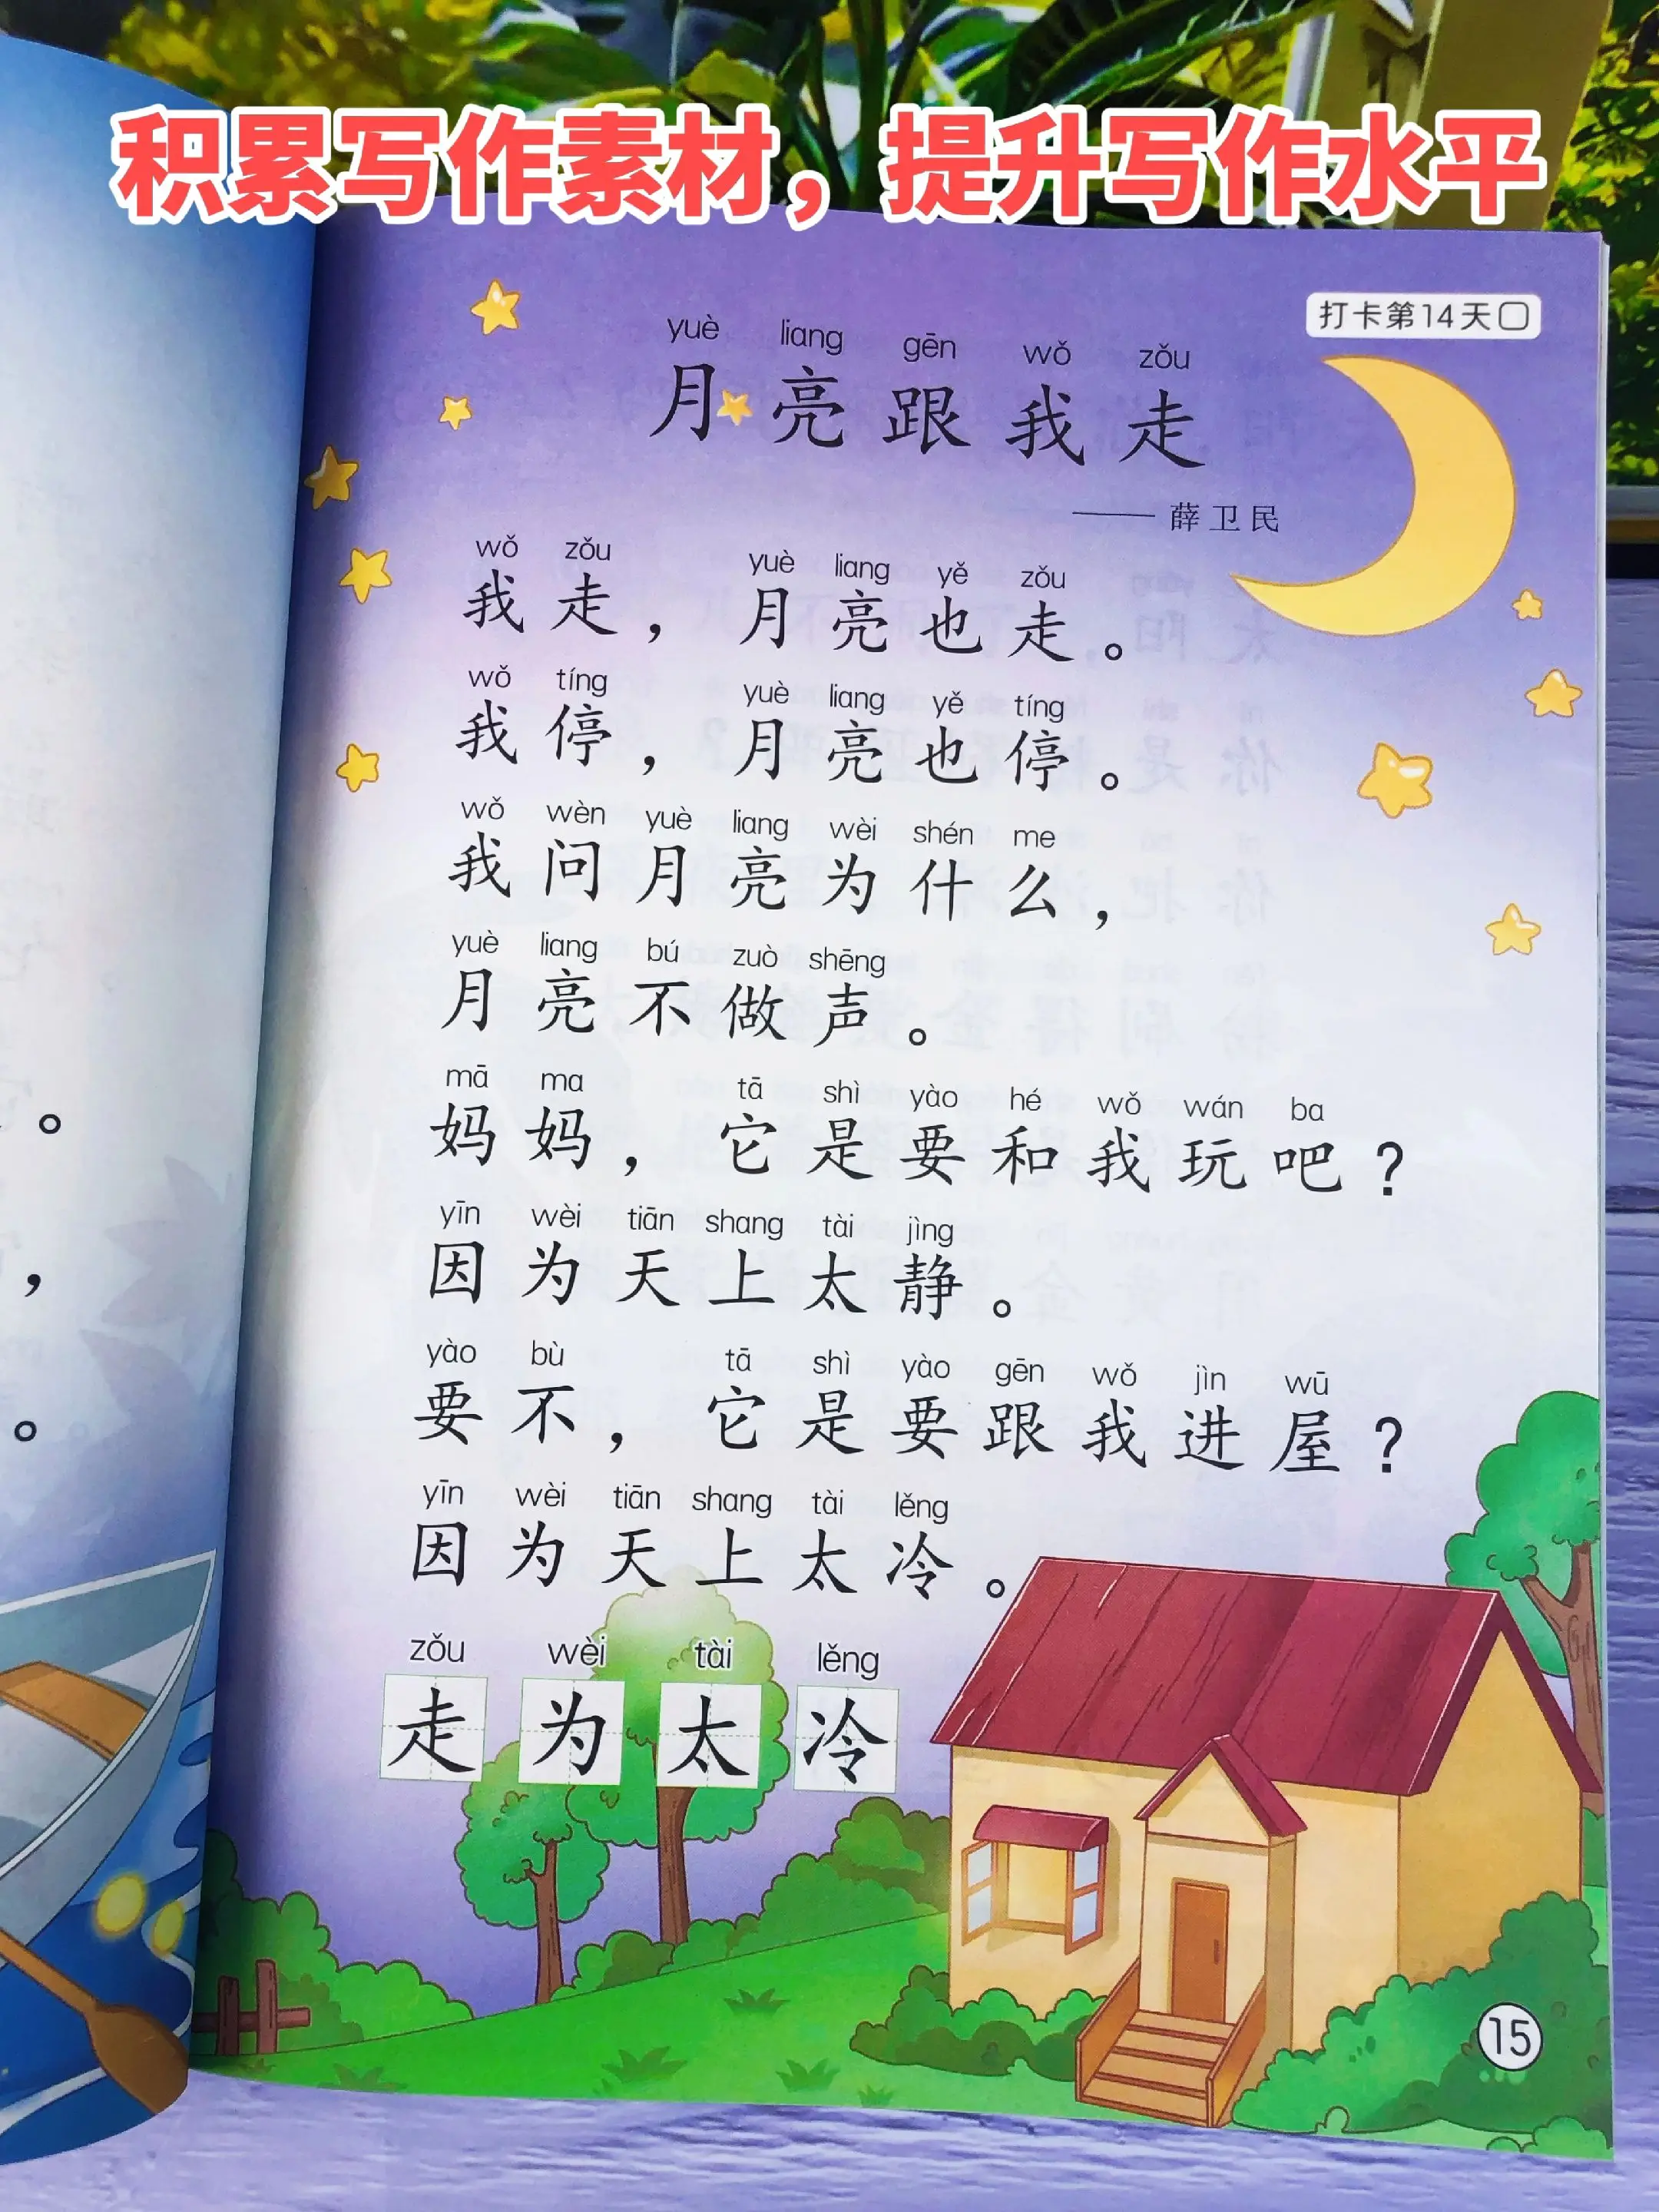 积累写作素材，提升写作水平
打卡第14天
yuè liang gēn wǒ zǒu
月亮跟我走
——薛卫民
wǒ zǒu yuè liang yě zǒu
我走，月亮也走。
wǒ tíng yuè liang yě tíng
我停，月亮也停。
wǒ wèn yuè liang wèi shén me
我问月亮为什么，
yuè liang bú zuò shēng
月亮不做声。
mā ma tā shì yào hé wǒ wán ba
妈妈，它是要和我玩吧？
yīn wèi tiān shang tài jìng
因为天上太静。
yào bù tā shì yào gēn wǒ jìn wū
要不，它是要跟我进屋？
yīn wèi tiān shang tài lěng
因为天上太冷。
zǒu wèi tài lěng
走 为 太 冷
15